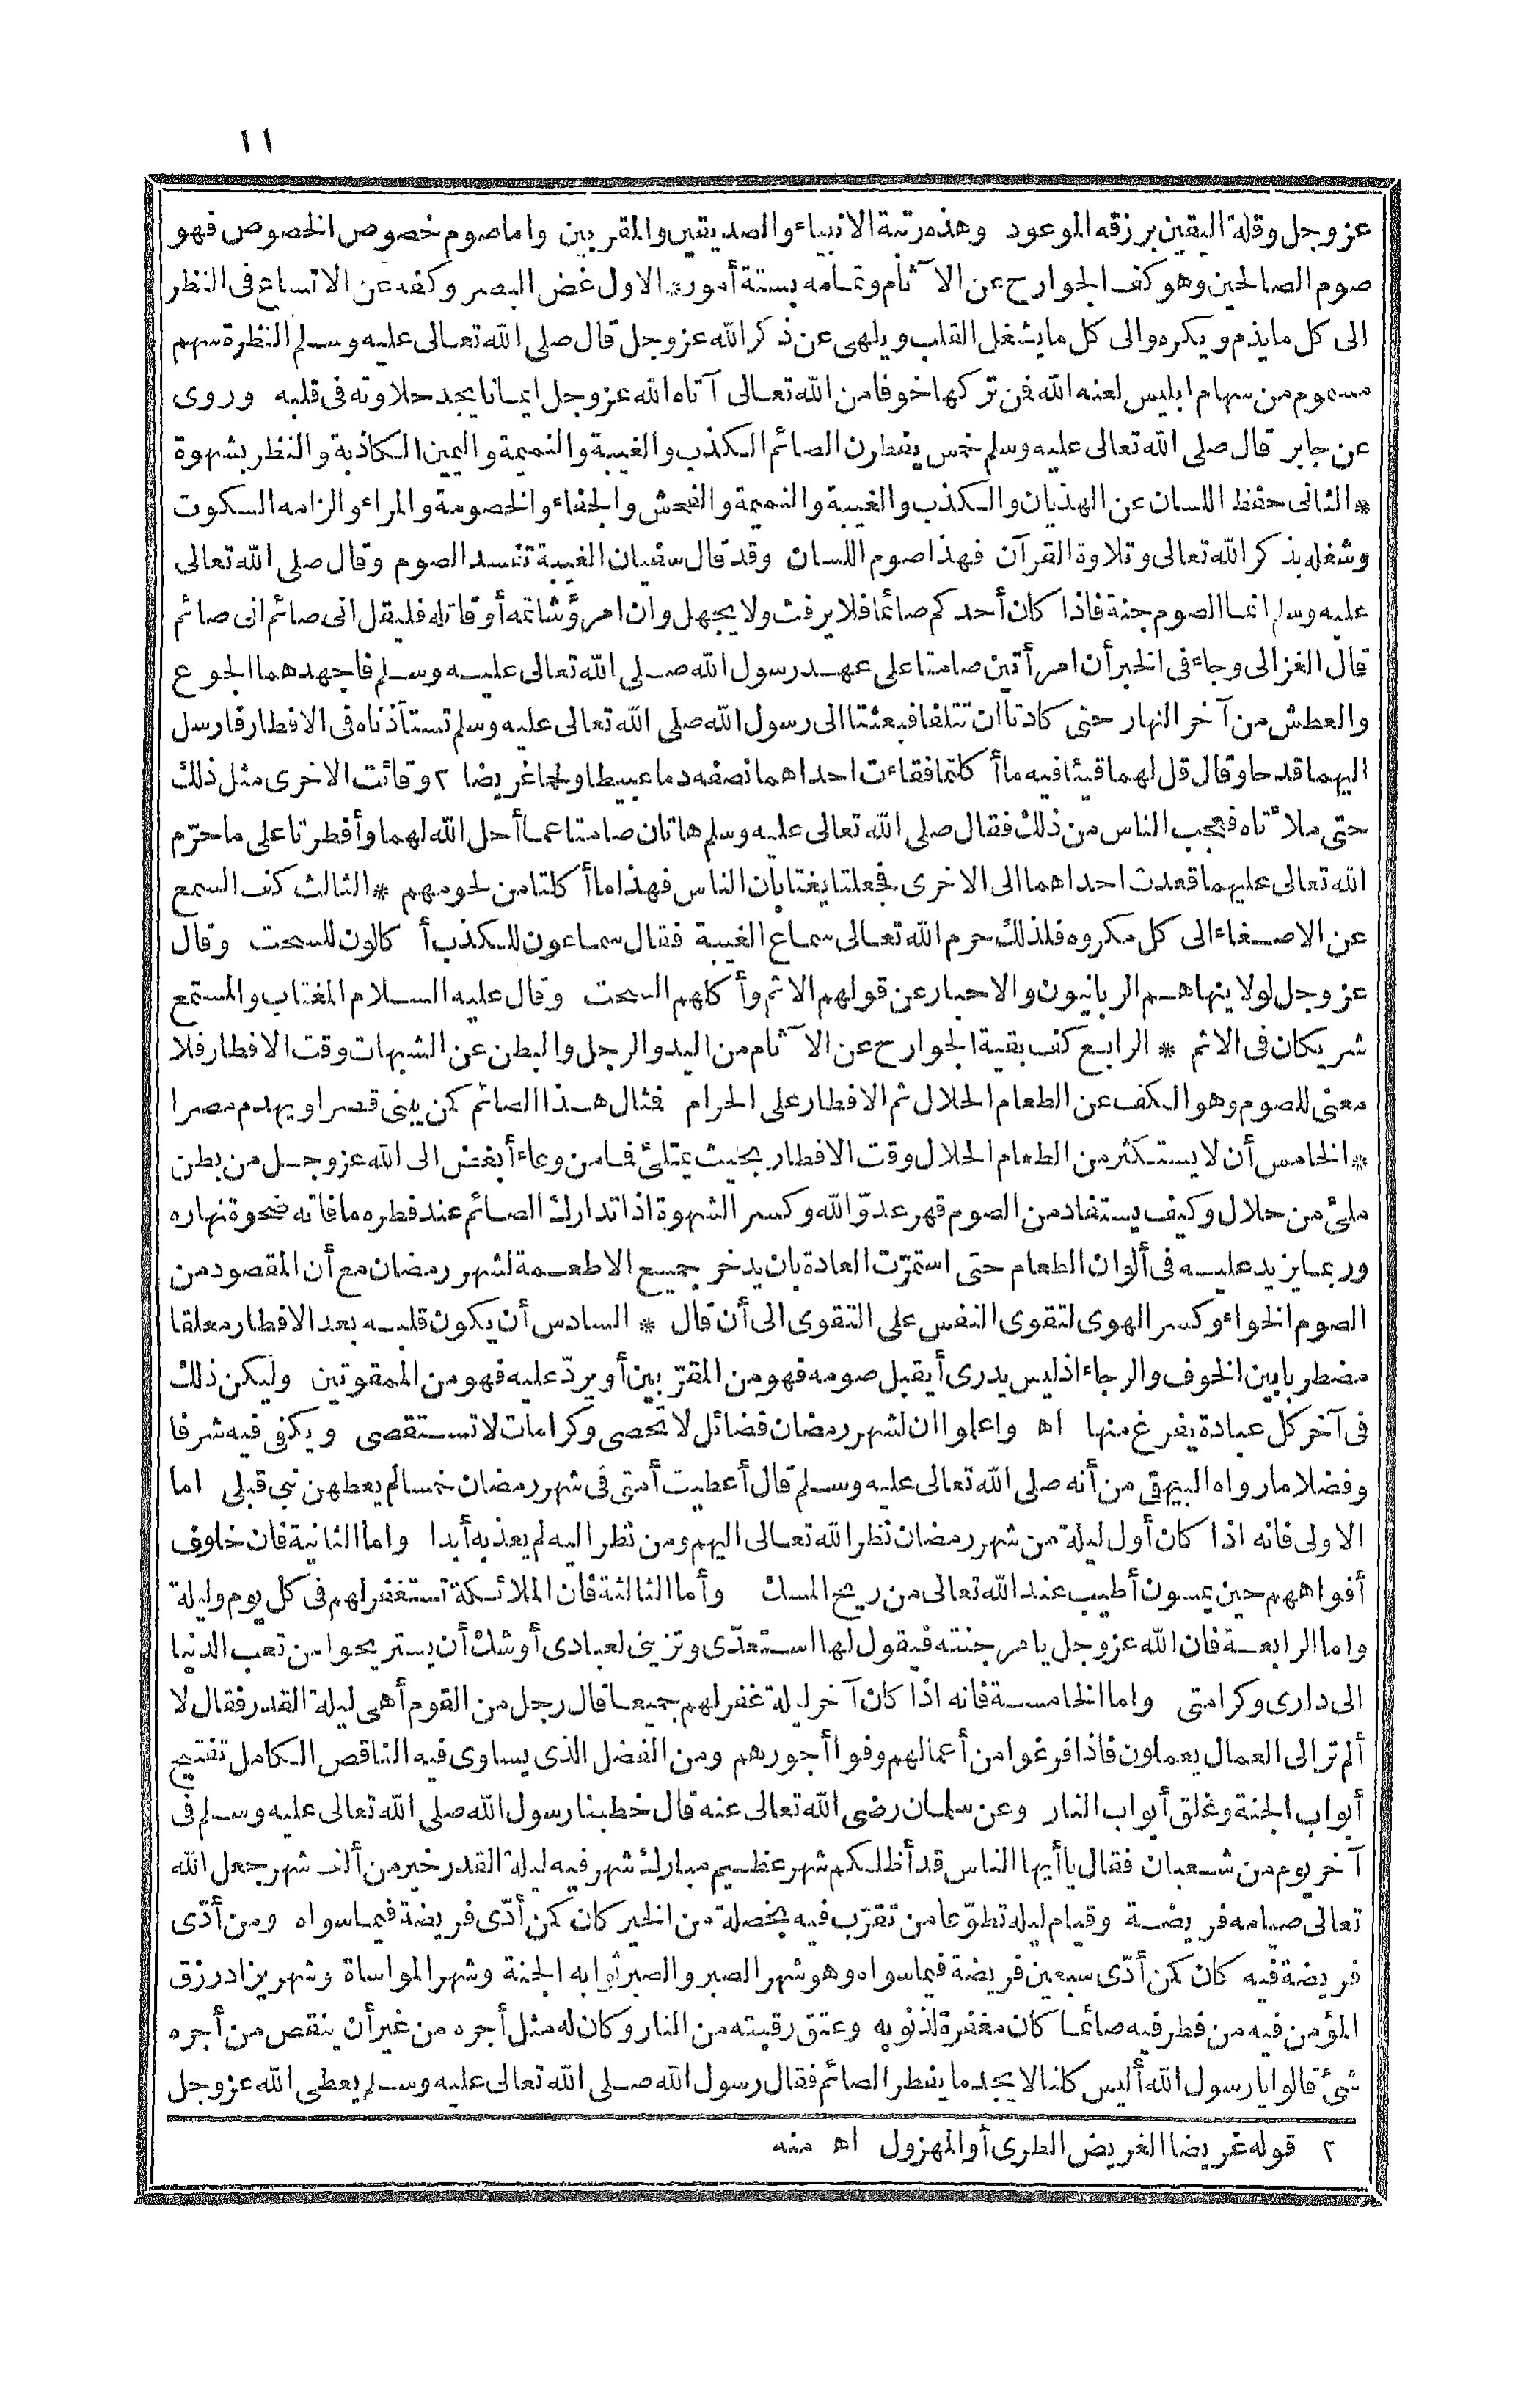 ١١
عز وجل وقلة اليقين برزقه الموعود وهذه رتبة الانبياء والصديقين والمقربين واما صوم خصوص الخصوص فهو
صوم الصالحين وهو كف الجوارح عن الآثام وتمامه بستة أمور * الاول غض البصر وكفه عن الاتساع فى النظر
الى كل ما يذم ويكره والى كل ما يشغل القلب ويلهى عن ذكر الله عز وجل قال صلى الله تعالى عليه وسلم النظرة سهم
مسموم من سهام ابليس لعنه الله فمن تركها خوفا من الله تعالى آتاه الله عز وجل ايمانا يجد حلاوته فى قلبه وروى
عن جابر قال صلى الله تعالى عليه وسلم خمس يفطرن الصائم الكذب والغيبة والنميمة واليمين الكاذبة والنظر بشهوة
* الثانى حفظ اللسان عن الهذيان والكذب والغيبة والنميمة والفحش والجفاء والخصومة والمراء والزامه السكوت
وشغله بذكر الله تعالى وتلاوة القرآن فهذا صوم اللسان وقد قال سفيان الغيبة تفسد الصوم وقال صلى الله تعالى
عليه وسلم انما الصوم جنة فاذا كان أحدكم صائما فلا يرفث ولا يجهل وان امرؤ شاتمه أو قاتله فليقل انى صائم انى صائم
قال الغزالى وجاء فى الخبر أن امرأتين صامتا على عهد رسول الله صلى الله تعالى عليه وسلم فاجهدهما الجوع
والعطش من آخر النهار حتى كادتا ان تتلفا فبعثتا الى رسول الله صلى الله تعالى عليه وسلم تستأذناه فى الافطار فارسل
اليهما قدحا وقال قل لهما قيئا فيه ما أكلتما فقاءت احداهما نصفه دما عبيطا ولحما غريضا ٢ وقائت الاخرى مثل ذلك
حتى ملأتاه فعجب الناس من ذلك فقال صلى الله تعالى عليه وسلم هاتان صامتا عما أحل الله لهما وأفطرتا على ما حرّم
الله تعالى عليهما قعدت احداهما الى الاخرى فجعلتا يغتابان الناس فهذا ما أكلتا من لحومهم * الثالث كف السمع
عن الاصغاء الى كل مكروه فلذلك حرم الله تعالى سماع الغيبة فقال سماعون للكذب أكالون للسحت وقال
عز وجل لولا ينهاهم الربانيون والاحبار عن قولهم الاثم وأكلهم السحت وقال عليه السلام المغتاب والمستمع
شريكان فى الاثم * الرابع كف بقية الجوارح عن الآثام من اليد والرجل والبطن عن الشبهات وقت الافطار فلا
معنى للصوم وهو الكف عن الطعام الحلال ثم الافطار على الحرام فمثال هذا الصائم كمن يبنى قصرا ويهدم مصرا
* الخامس أن لا يستكثر من الطعام الحلال وقت الافطار بحيث يمتلئ فما من وعاء أبغض الى الله عز وجل من بطن
ملئ من حلال وكيف يستفاد من الصوم قهر عدوّ الله وكسر الشهوة اذا تدارك الصائم عند فطره ما فاته ضحوة نهاره
وربما يزيد عليه فى ألوان الطعام حتى استمرّت العادة بان يدخر جميع الاطعمة لشهر رمضان مع أن المقصود من
الصوم الخواء وكسر الهوى لتقوى النفس على التقوى الى أن قال * السادس أن يكون قلبه بعد الافطار معلقا
مضطربا بين الخوف والرجاء اذ ليس يدرى أيقبل صومه فهو من المقرّبين أو يردّ عليه فهو من الممقوتين وليكن ذلك
فى آخر كل عبادة يفرغ منها اه واعلموا ان لشهر رمضان فضائل لا تحصى وكرامات لا تستقصى ويكفى فيه شرفا
وفضلا ما رواه البيهقى من أنه صلى الله تعالى عليه وسلم قال أعطيت أمتى فى شهر رمضان خمسا لم يعطهن نبى قبلى اما
الاولى فانه اذا كان أول ليلة من شهر رمضان نظر الله تعالى اليهم ومن نظر اليه لم يعذبه أبدا واما الثانية فان خلوف
أفواههم حين يمسون أطيب عند الله تعالى من ريح المسك وأما الثالثة فان الملائكة تستغفر لهم فى كل يوم وليلة
واما الرابعة فان الله عز وجل يامر جنته فيقول لها استعدّى وتزينى لعبادى أوشك أن يستريحوا من تعب الدنيا
الى دارى وكرامتى واما الخامسة فانه اذا كان آخر ليلة غفر لهم جميعا قال رجل من القوم أهى ليلة القدر فقال لا
ألم تر الى العمال يعملون فاذا فرغوا من أعمالهم وفوا أجورهم ومن الفضل الذى يساوى فيه الناقص الكامل تفتيح
أبواب الجنة وغلق أبواب النار وعن سلمان رضى الله تعالى عنه قال خطبنا رسول الله صلى الله تعالى عليه وسلم فى
آخر يوم من شعبان فقال يا أيها الناس قد أظلكم شهر عظيم مبارك شهر فيه ليلة القدر خير من ألف شهر جعل الله
تعالى صيامه فريضة وقيام ليله تطوّعا من تقرّب فيه بخصلة من الخير كان كمن أدّى فريضة فيما سواه ومن أدّى
فريضة فيه كان كمن أدّى سبعين فريضة فيما سواه وهو شهر الصبر والصبر ثوابه الجنة وشهر المواساة وشهر يزاد رزق
المؤمن فيه من فطر فيه صائما كان مغفرة لذنوبه وعتق رقبته من النار وكان له مثل أجره من غير أن ينقص من أجره
شئ قالوا يا رسول الله أليس كلنا لا يجد ما يفطر الصائم فقال رسول الله صلى الله تعالى عليه وسلم يعطى الله عز وجل
٢ قوله غريضا الغريض الطرى أو المهزول اه منه